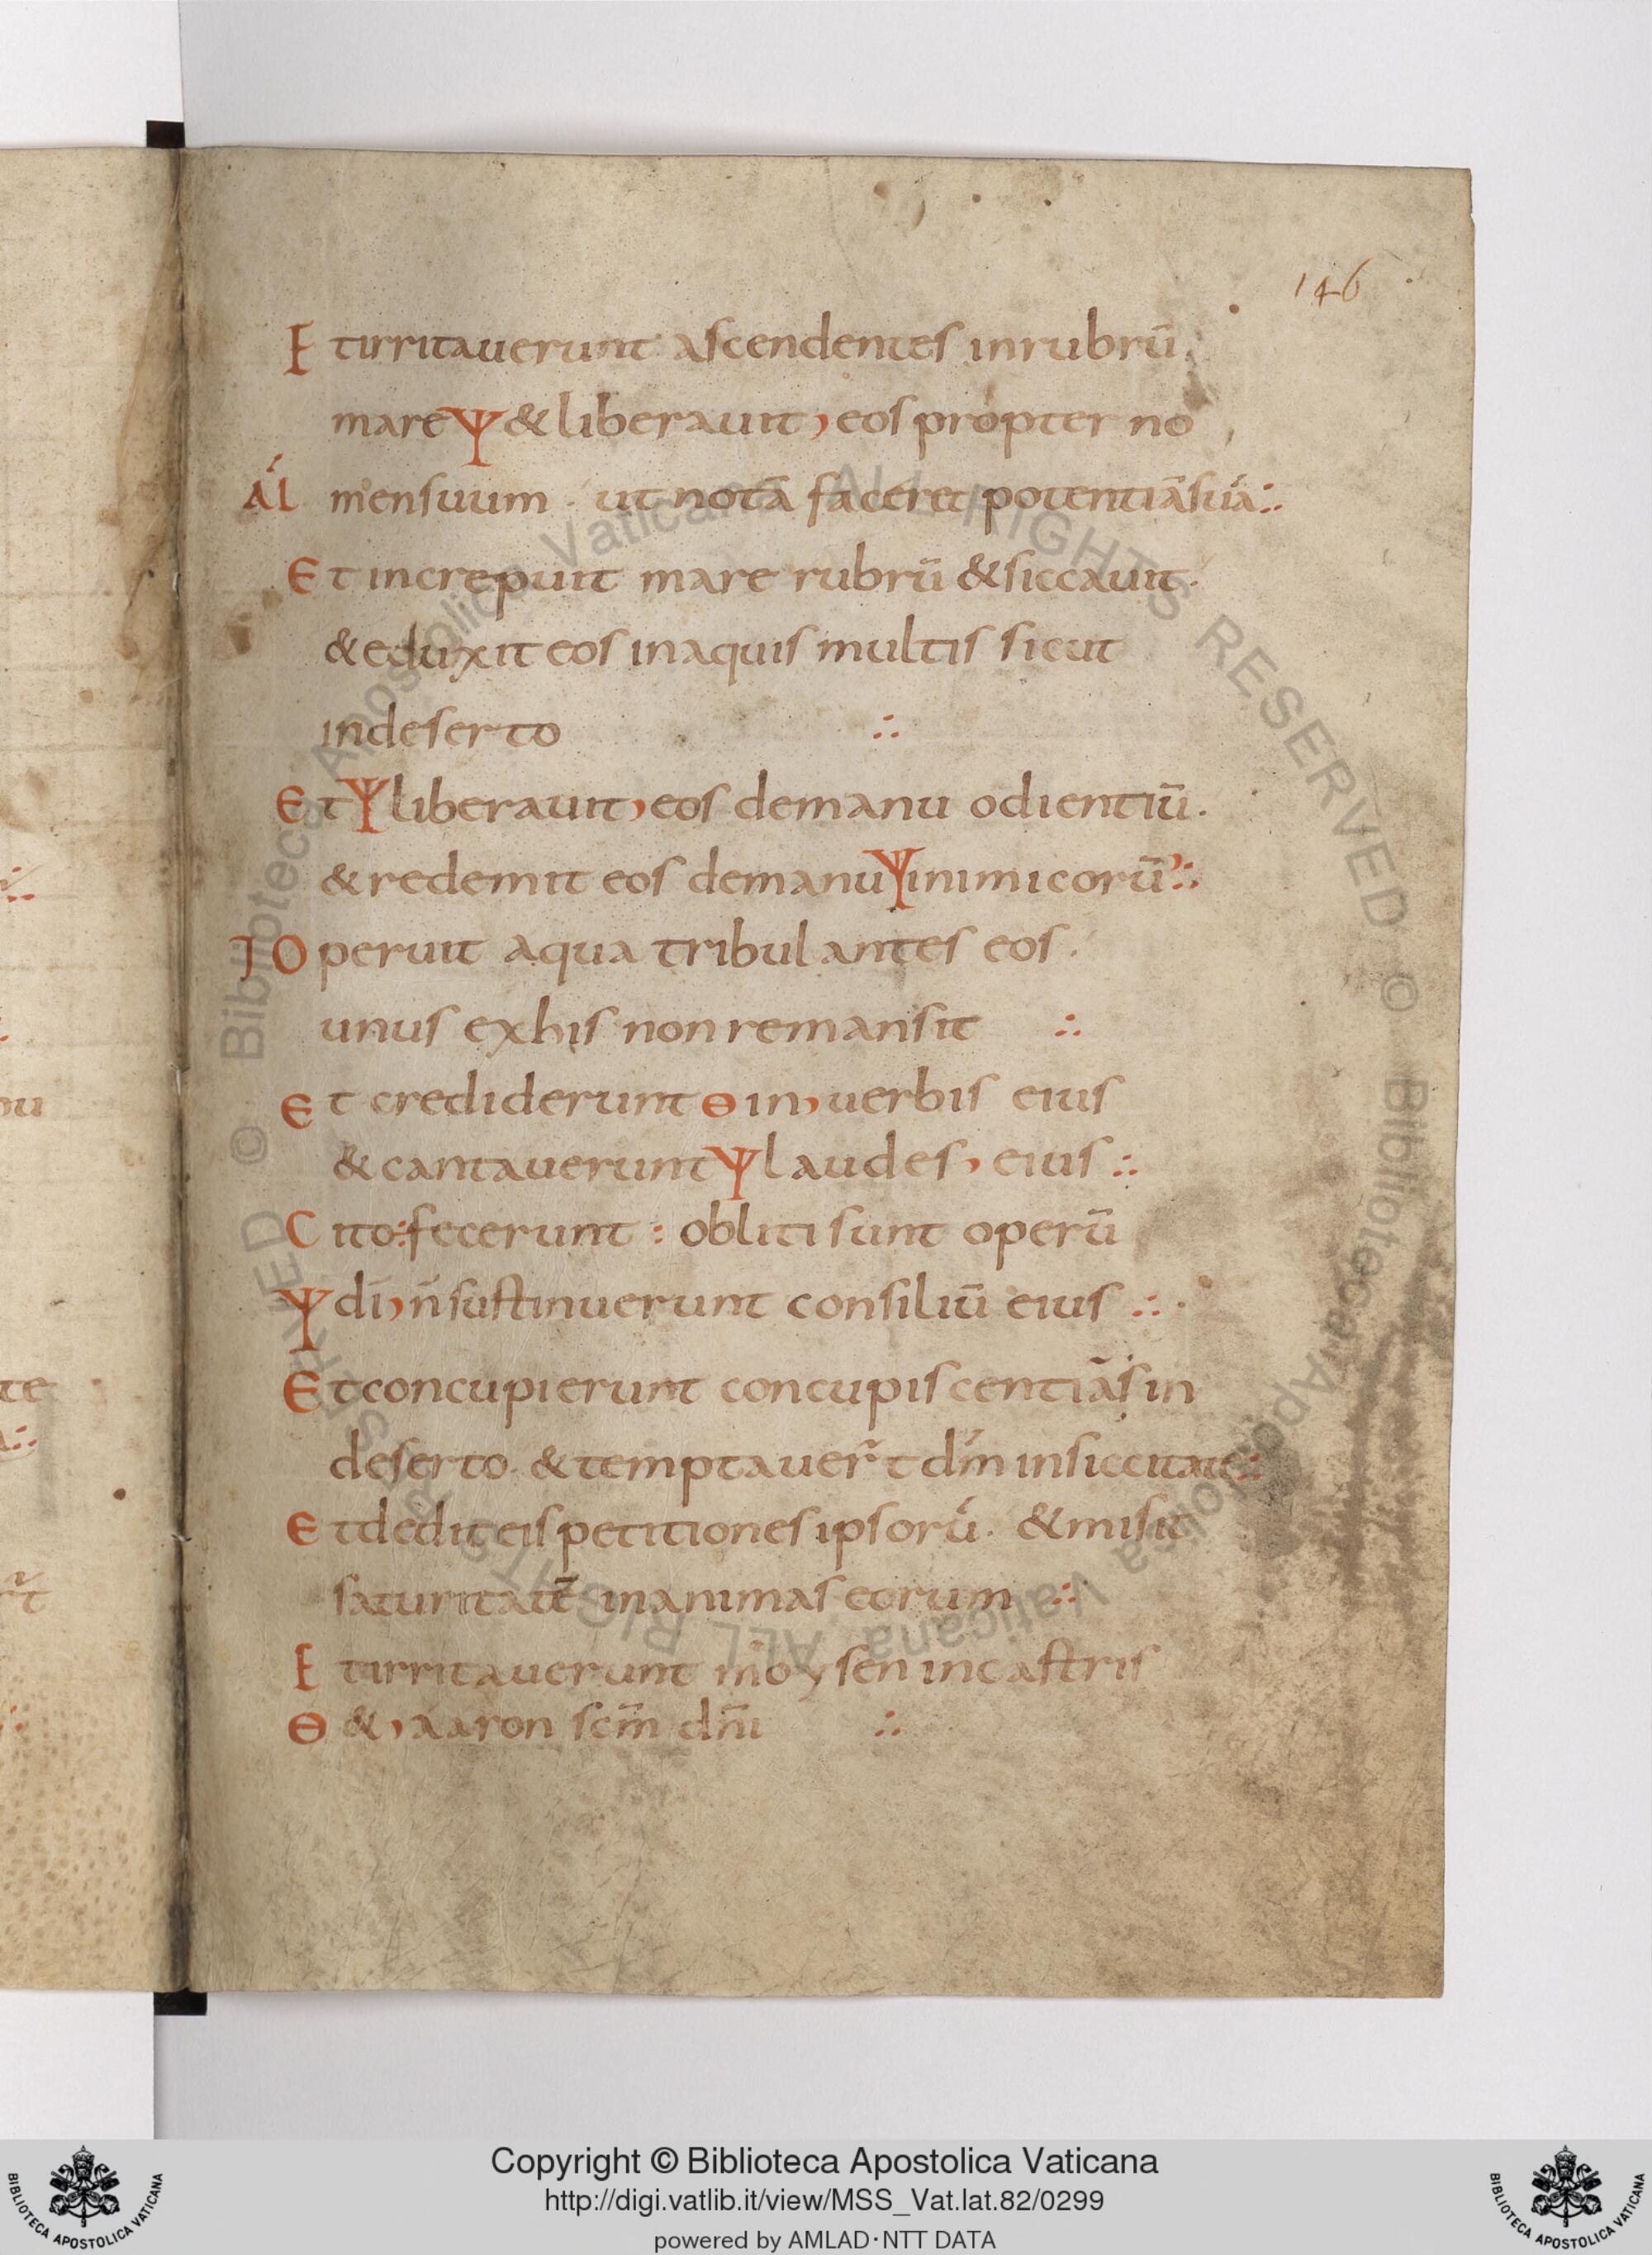 146
Et irritauerunt ascendentes in rubrū
mare Ψ & liberauit, eos propter no
Al mensuum · ut notā faceret potentiā suā ∴
Et increpuit mare rubrū & siccauit ·
& eduxit eos in aquis multis sicut
in deserto ∴
Et Ψ liberauit, eos de manu odientiū ·
& redemit eos de manu Ψ inimicorū, ∴
Operuit aqua tribulantes eos ·
unus ex his non remansit ∴
Et crediderunt Θ in, uerbis eius
& cantauerunt Ψ laudes, eius ∴
Cito : fecerunt : obliti sunt operū
Ψ dī, n̄ sustinuerunt consiliū eius ∴
Et concupierunt concupiscentiās in
deserto · & temptauer̃t dm̄ in siccitate ∴
Et dedit eis petitiones ipsorū · & misit
saturitatē in animas eorum ∴
Et irritauerunt moysen in castris
Θ &, aaron scm̄ dn̄i ∴
© Biblioteca Apostolica Vaticana ALL RIGHTS RESERVED © Biblioteca Apostolica Vaticana ALL RIGHTS RESERVED
Copyright © Biblioteca Apostolica Vaticana
http://digi.vatlib.it/view/MSS_Vat.lat.82/0299
powered by AMLAD·NTT DATA
BIBLIOTECA APOSTOLICA VATICANA
BIBLIOTECA APOSTOLICA VATICANA